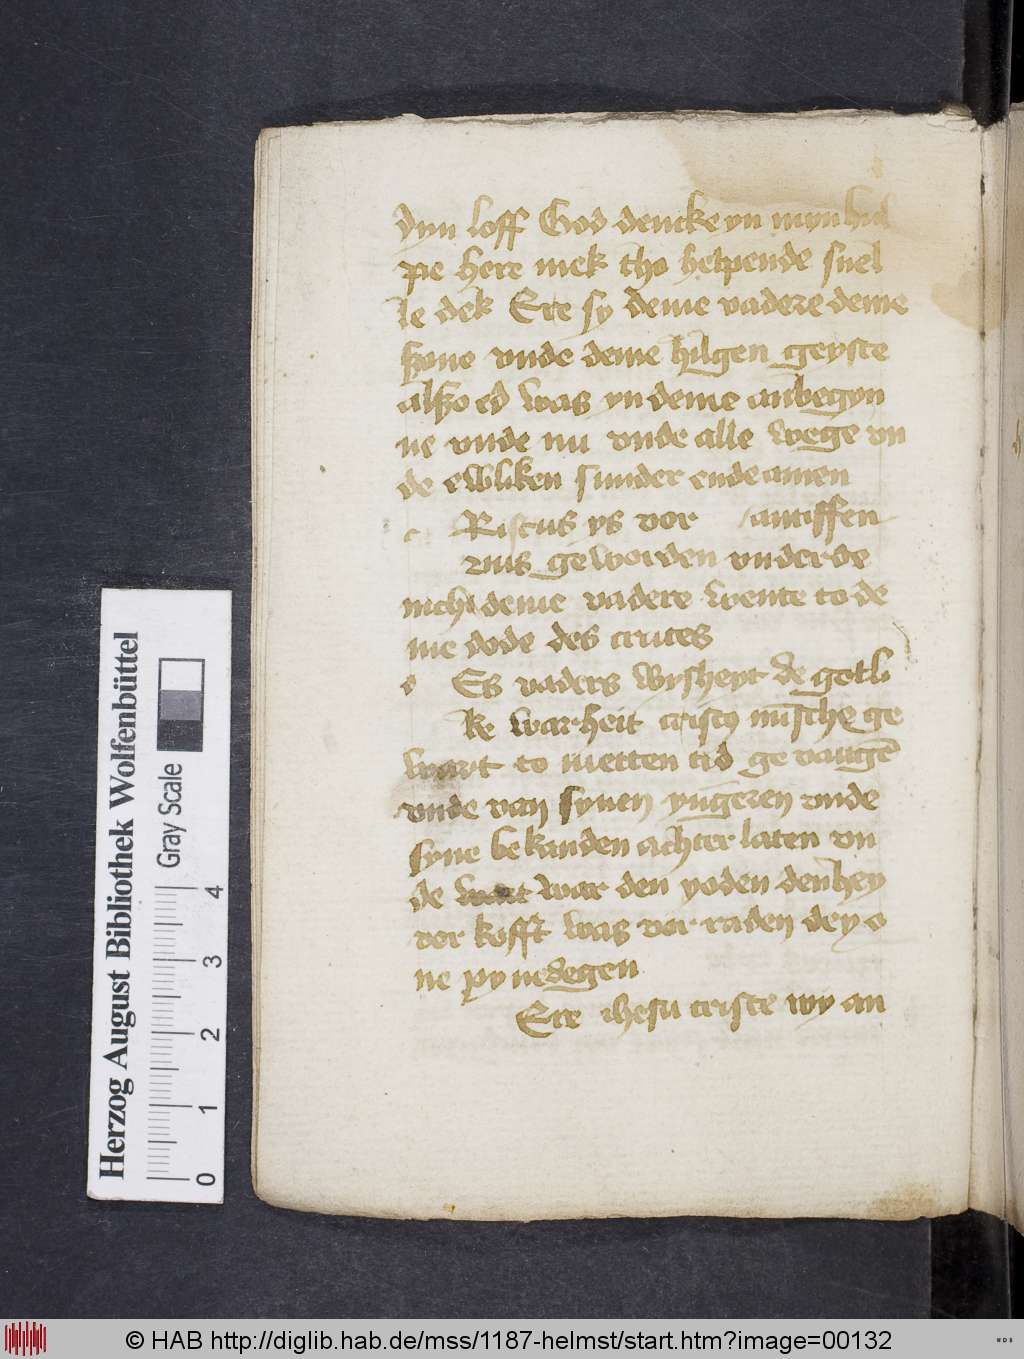 dyn loff God dencke yn myn hul
pe here mek tho helpende snel
le dek Ere sy deme vadere deme
szone vnde deme hilgen geyste
alszo ed was yn deme anbegyn
ne vnde nu vnde alle wege vn
de ewliken sunder ende amen
c Ristus ys vor antiffen
vns geworden vnderde
nich deme vadere wente to de
me dode des cruces
d Es vaders wysheyt de gotli
ke warheit cristꝯ mīsche ge
wart to metten tid ge vangē
vnde van synen yngeren vnde
syne bekanden achter laten vn
de wart war den yoden den hey
vor kofft was vor raden dey o
ne pynedegen
Ere ihesu criste wy an
Herzog August Bibliothek Wolfenbüttel
Gray Scale
0 1 2 3 4
© HAB http://diglib.hab.de/mss/1187-helmst/start.htm?image=00132